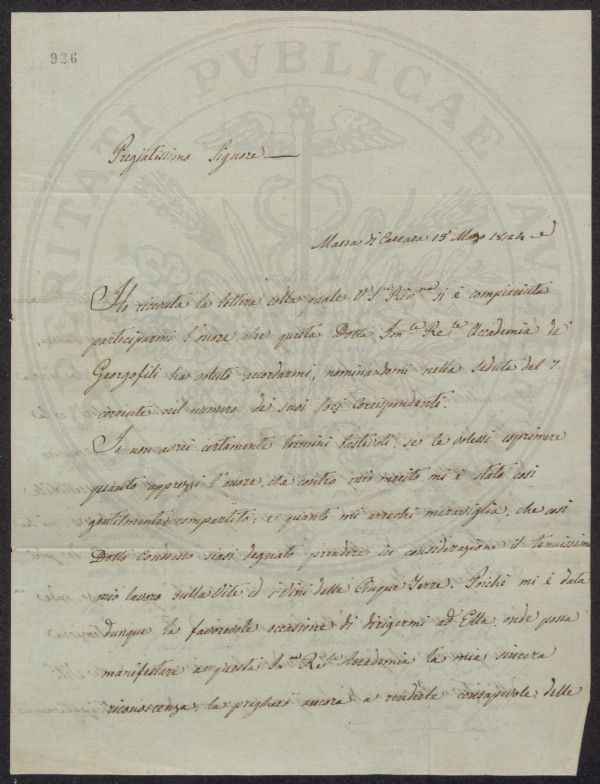 926
PROSPERITATI PVBLICAE AV
Pregiatissimo Signore
Massa di Carrara 15 1824
Ho ricevuta la lettera colla quale V. S. si è compiaciuta
parteciparmi l'onore che questa Dotta Accademia de'
Georgofili ha voluto accordarmi, nominandomi nella seduta del 7.
corrente nel numero de' suoi Socj Corrispondenti.
Io non avrei certamente termini bastevoli, se le volessi esprimere
quanto apprezzi l'onore, che contro mio merito mi è stato così
gentilmente compartito, e quanto mi arrechi meraviglia, che così
Dotto Consesso siasi degnato prendere in considerazione il tenuissimo
mio lavoro sulla Vite ed i Vini delle Cinque Terre. Poichè mi è data
dunque la favorevole occasione di dirigermi ad Ella, onde possa
manifestare a questa Accademia la mia sincera
riconoscenza, la ancora a renderla consapevole delle